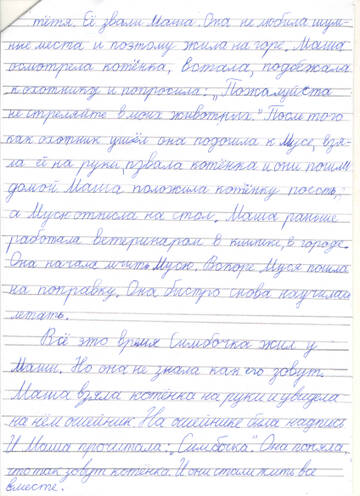 тётя. Её звали Маша. Она не любила шум-
ные места и поэтому жила на горе. Маша
осмотрела котёнка, встала, подбежала
к охотнику и попросила: „Пожалуйста
не стреляйте в моих животных." После того
как охотник ушёл она подошла к Мусе, взя-
ла её на руки, позвала котёнка и они пошли
домой. Маша положила котёнку поесть,
а Мусю отнесла на стол. Маша раньше
работала ветеринаром в клинике, в городе.
Она начала лечить Мусю. Вскоре Муся пошла
на поправку. Она быстро снова научилась
летать.
Всё это время Симбочка жил у
Маши. Но она не знала как его зовут.
Маша взяла котёнка на руки и увидела
на нём ошейник. На ошейнике была надпись
И Маша прочитала: „Симбочка". Она поняла,
что так зовут котёнка. И они стали жить все
вместе.